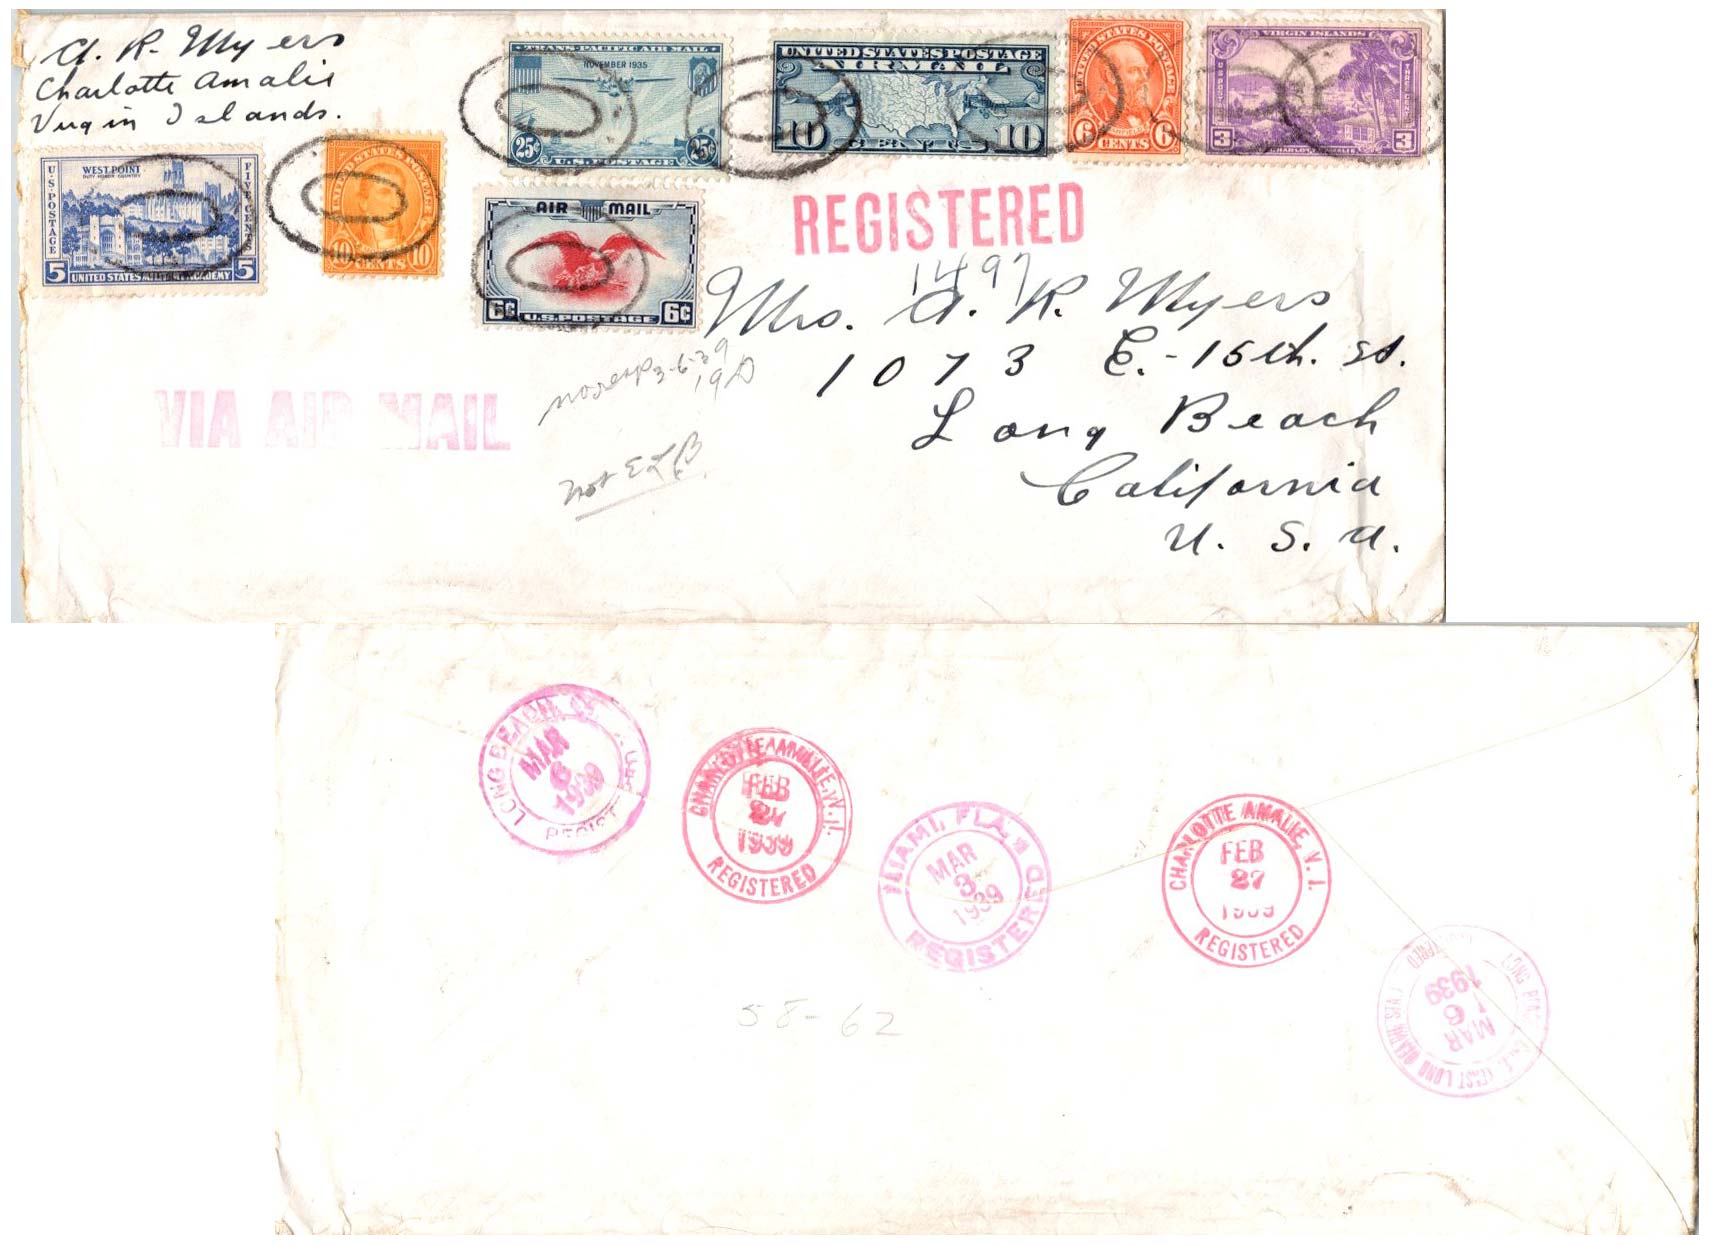 A. R. Myers
Charlotte Amalie
Virgin Islands.
TRANS-PACIFIC AIR MAIL
NOVEMBER 1935
25¢ U.S. POSTAGE 25¢
UNITED STATES POSTAGE
AIR MAIL
10 CENTS 10
UNITED STATES POSTAGE
GARFIELD
6 CENTS 6
VIRGIN ISLANDS
U.S. POSTAGE
THREE CENTS
3 CHARLOTTE AMALIE 3
WEST POINT
DUTY HONOR COUNTRY
U.S. POSTAGE
FIVE CENTS
5 UNITED STATES MILITARY ACADEMY 5
UNITED STATES POSTAGE
10 CENTS 10
AIR MAIL
6¢ U.S. POSTAGE 6¢
REGISTERED
1497
Mrs. A. R. Myers
1073 E.-15th. St.
Long Beach
California
U. S. A.
VIA AIR MAIL
no resp 3-6-39
not ELB
LONG BEACH,
MAR
6
1939
REGIST
CHARLOTTE AMALIE, V.I.
FEB
27
1939
REGISTERED
MIAMI, FLA.
MAR
3
1939
REGISTERED
CHARLOTTE AMALIE, V.I.
FEB
27
1939
REGISTERED
MAR
6
1939
58-62